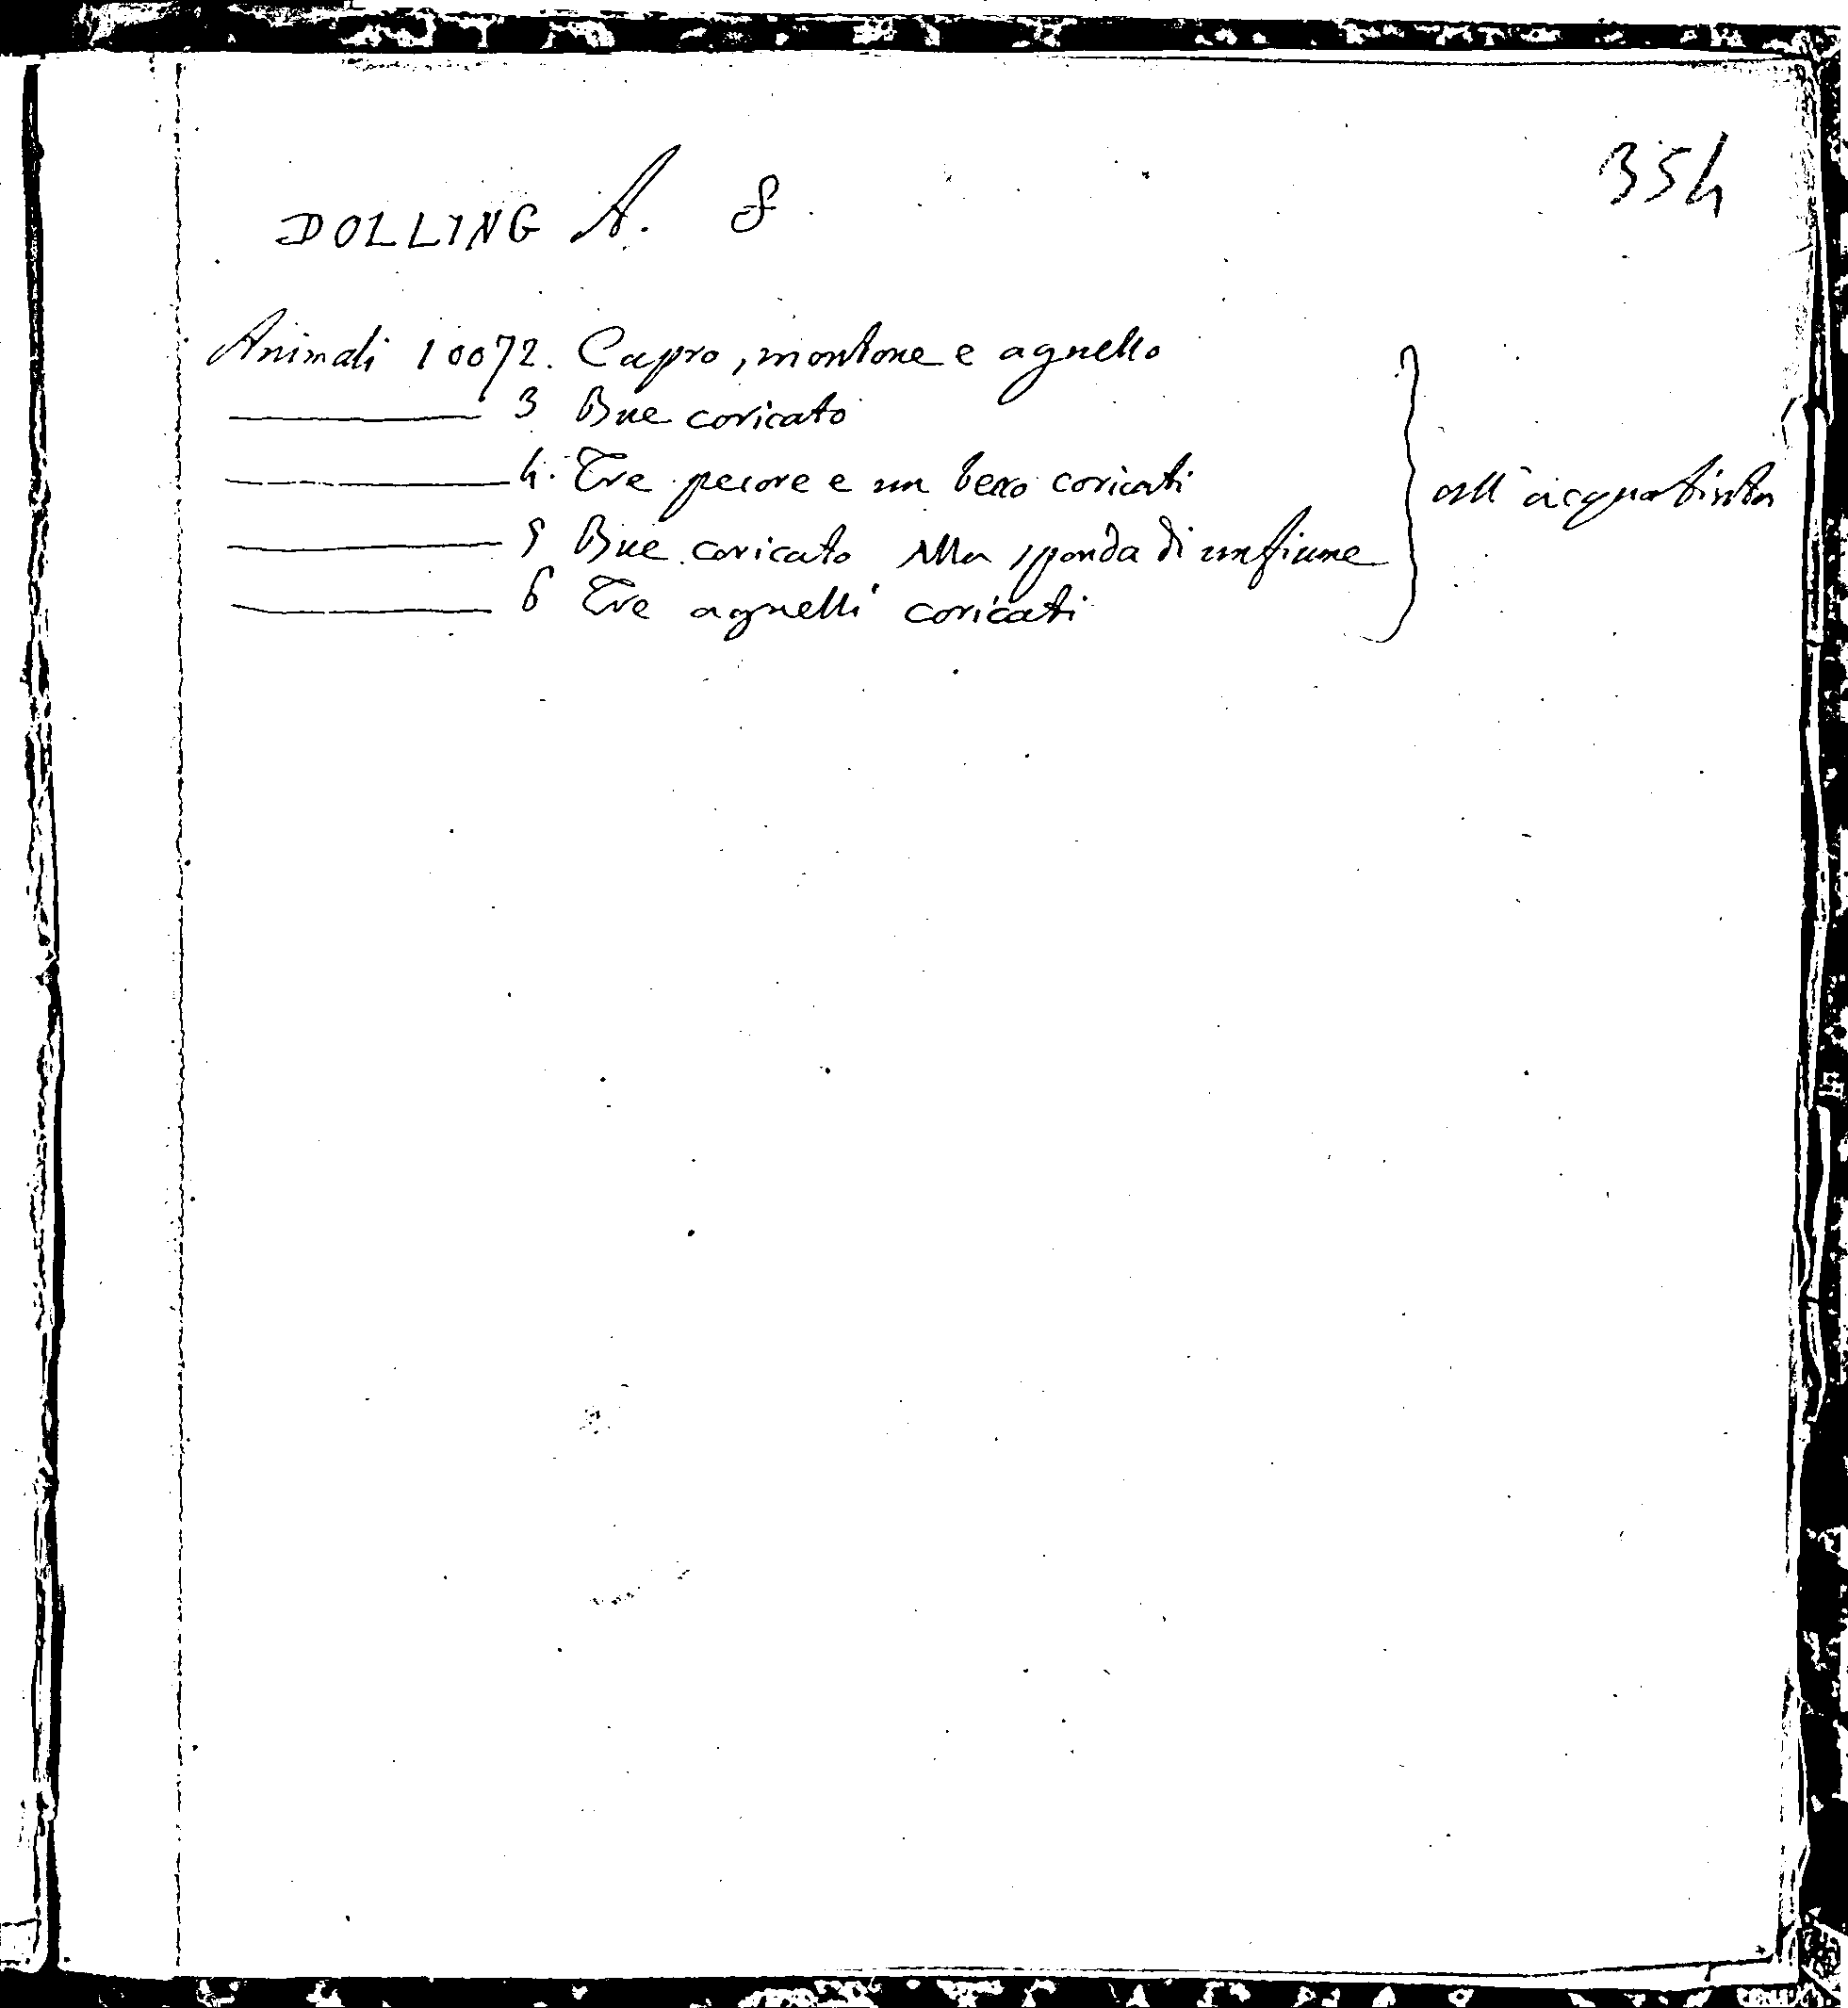 354
DOLLING A. 8
Animali 10072. Capro, montone e agnello
3 Bue coricato
4. Tre pecore e un becco coricati
5 Bue coricato alla sponda di un fiume
6 Tre agnelli coricati
all'acquatinta